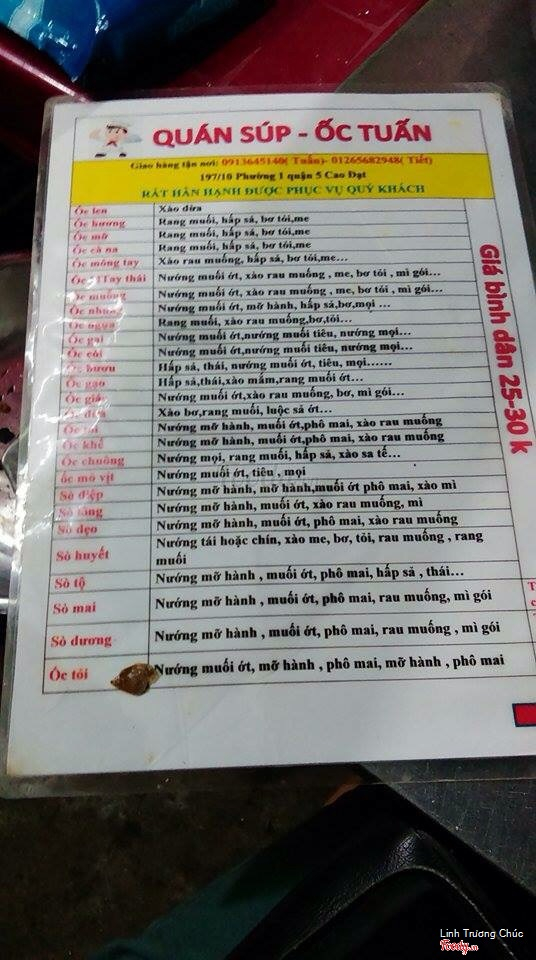 QUÁN SÚP - ỐC TUẤN
Giao hàng tận nơi: 0913645140( Tuấn)- 01265682948( Tiết)
197/10 Phường 1 quận 5 Cao Đạt
RẤT HÂN HẠNH ĐƯỢC PHỤC VỤ QUÝ KHÁCH
Ốc len Xào dừa
Ốc hương Rang muối, hấp sả, bơ tỏi,me
Ốc mỡ Rang muối, hấp sả, bơ tỏi,me
Ốc cà na Rang muối, hấp sả, bơ tỏi,me
Ốc móng tay Xào rau muống, hấp sả, bơ tỏi,me...
Ốc Tay thái Nướng muối ớt, xào rau muống , me, bơ tỏi , mì gói...
Ốc muống Nướng muối ớt, xào rau muống , me, bơ tỏi , mì gói...
Ốc nhung Nướng muối ớt, mỡ hành, hấp sả,bơ,mọi ...
Ốc ngựa Rang muối, xào rau muống,bơ,tỏi...
Ốc gai Nướng muối ớt,nướng muối tiêu, nướng mọi...
Ốc còi Nướng muối ớt,nướng muối tiêu, nướng mọi...
Ốc bươu Hấp sả, thái, nướng muối ớt, tiêu, mọi......
Ốc gạo Hấp sả,thái,xào mắm,rang muối ớt...
Ốc giác Nướng muối ớt,xào rau muống, bơ, mì gói...
Ốc dừa Xào bơ,rang muối, luộc sả ớt...
Ốc Nướng mỡ hành, muối ớt,phô mai, xào rau muống
Ốc khế Nướng mỡ hành, muối ớt,phô mai, xào rau muống
Ốc chuông Nướng mọi, rang muối, hấp sả, xào sa tế...
ốc mỏ vịt Nướng muối ớt, tiêu , mọi
Sò điệp Nướng mỡ hành, mỡ hành,muối ớt phô mai, xào mì
Sò lông Nướng mỡ hành, muối ớt, xào rau muống, mì
Sò dẹo Nướng mỡ hành, muối ớt, phô mai, xào rau muống
Sò huyết Nướng tái hoặc chín, xào me, bơ, tỏi, rau muống , rang
muối
Sò tộ Nướng mỡ hành , muối ớt, phô mai, hấp sả , thái...
Sò mai Nướng mỡ hành , muối ớt, phô mai, rau muống, mì gói
Sò dương Nướng mỡ hành , muối ớt, phô mai, rau muống , mì gói
Ốc tỏi Nướng muối ớt, mỡ hành , phô mai, mỡ hành , phô mai
Giá bình dân 25-30 k
Linh Trương Chúc
Foody.vn